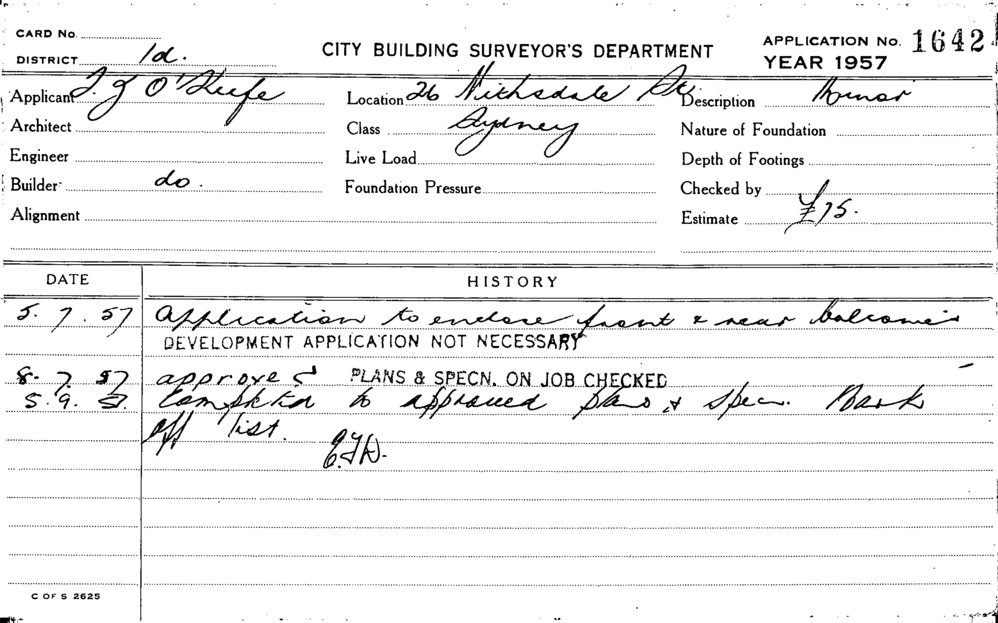 CARD No.
CITY BUILDING SURVEYOR'S DEPARTMENT
APPLICATION No. 1642
DISTRICT 1d.
YEAR 1957
Applicant T. J O'Keefe
Location 26 Nithsdale St.
Description Minor
Architect
Class Sydney
Nature of Foundation
Engineer
Live Load
Depth of Footings
Builder do.
Foundation Pressure
Checked by
Alignment
Estimate £75.
DATE HISTORY
5. 7. 57 Application to enclose front & rear balconies
DEVELOPMENT APPLICATION NOT NECESSARY
8. 7. 57 approved PLANS & SPECN. ON JOB CHECKED
5. 9. 57. Completed to approved plans & specn. Mark
off list.
C OF S 2625